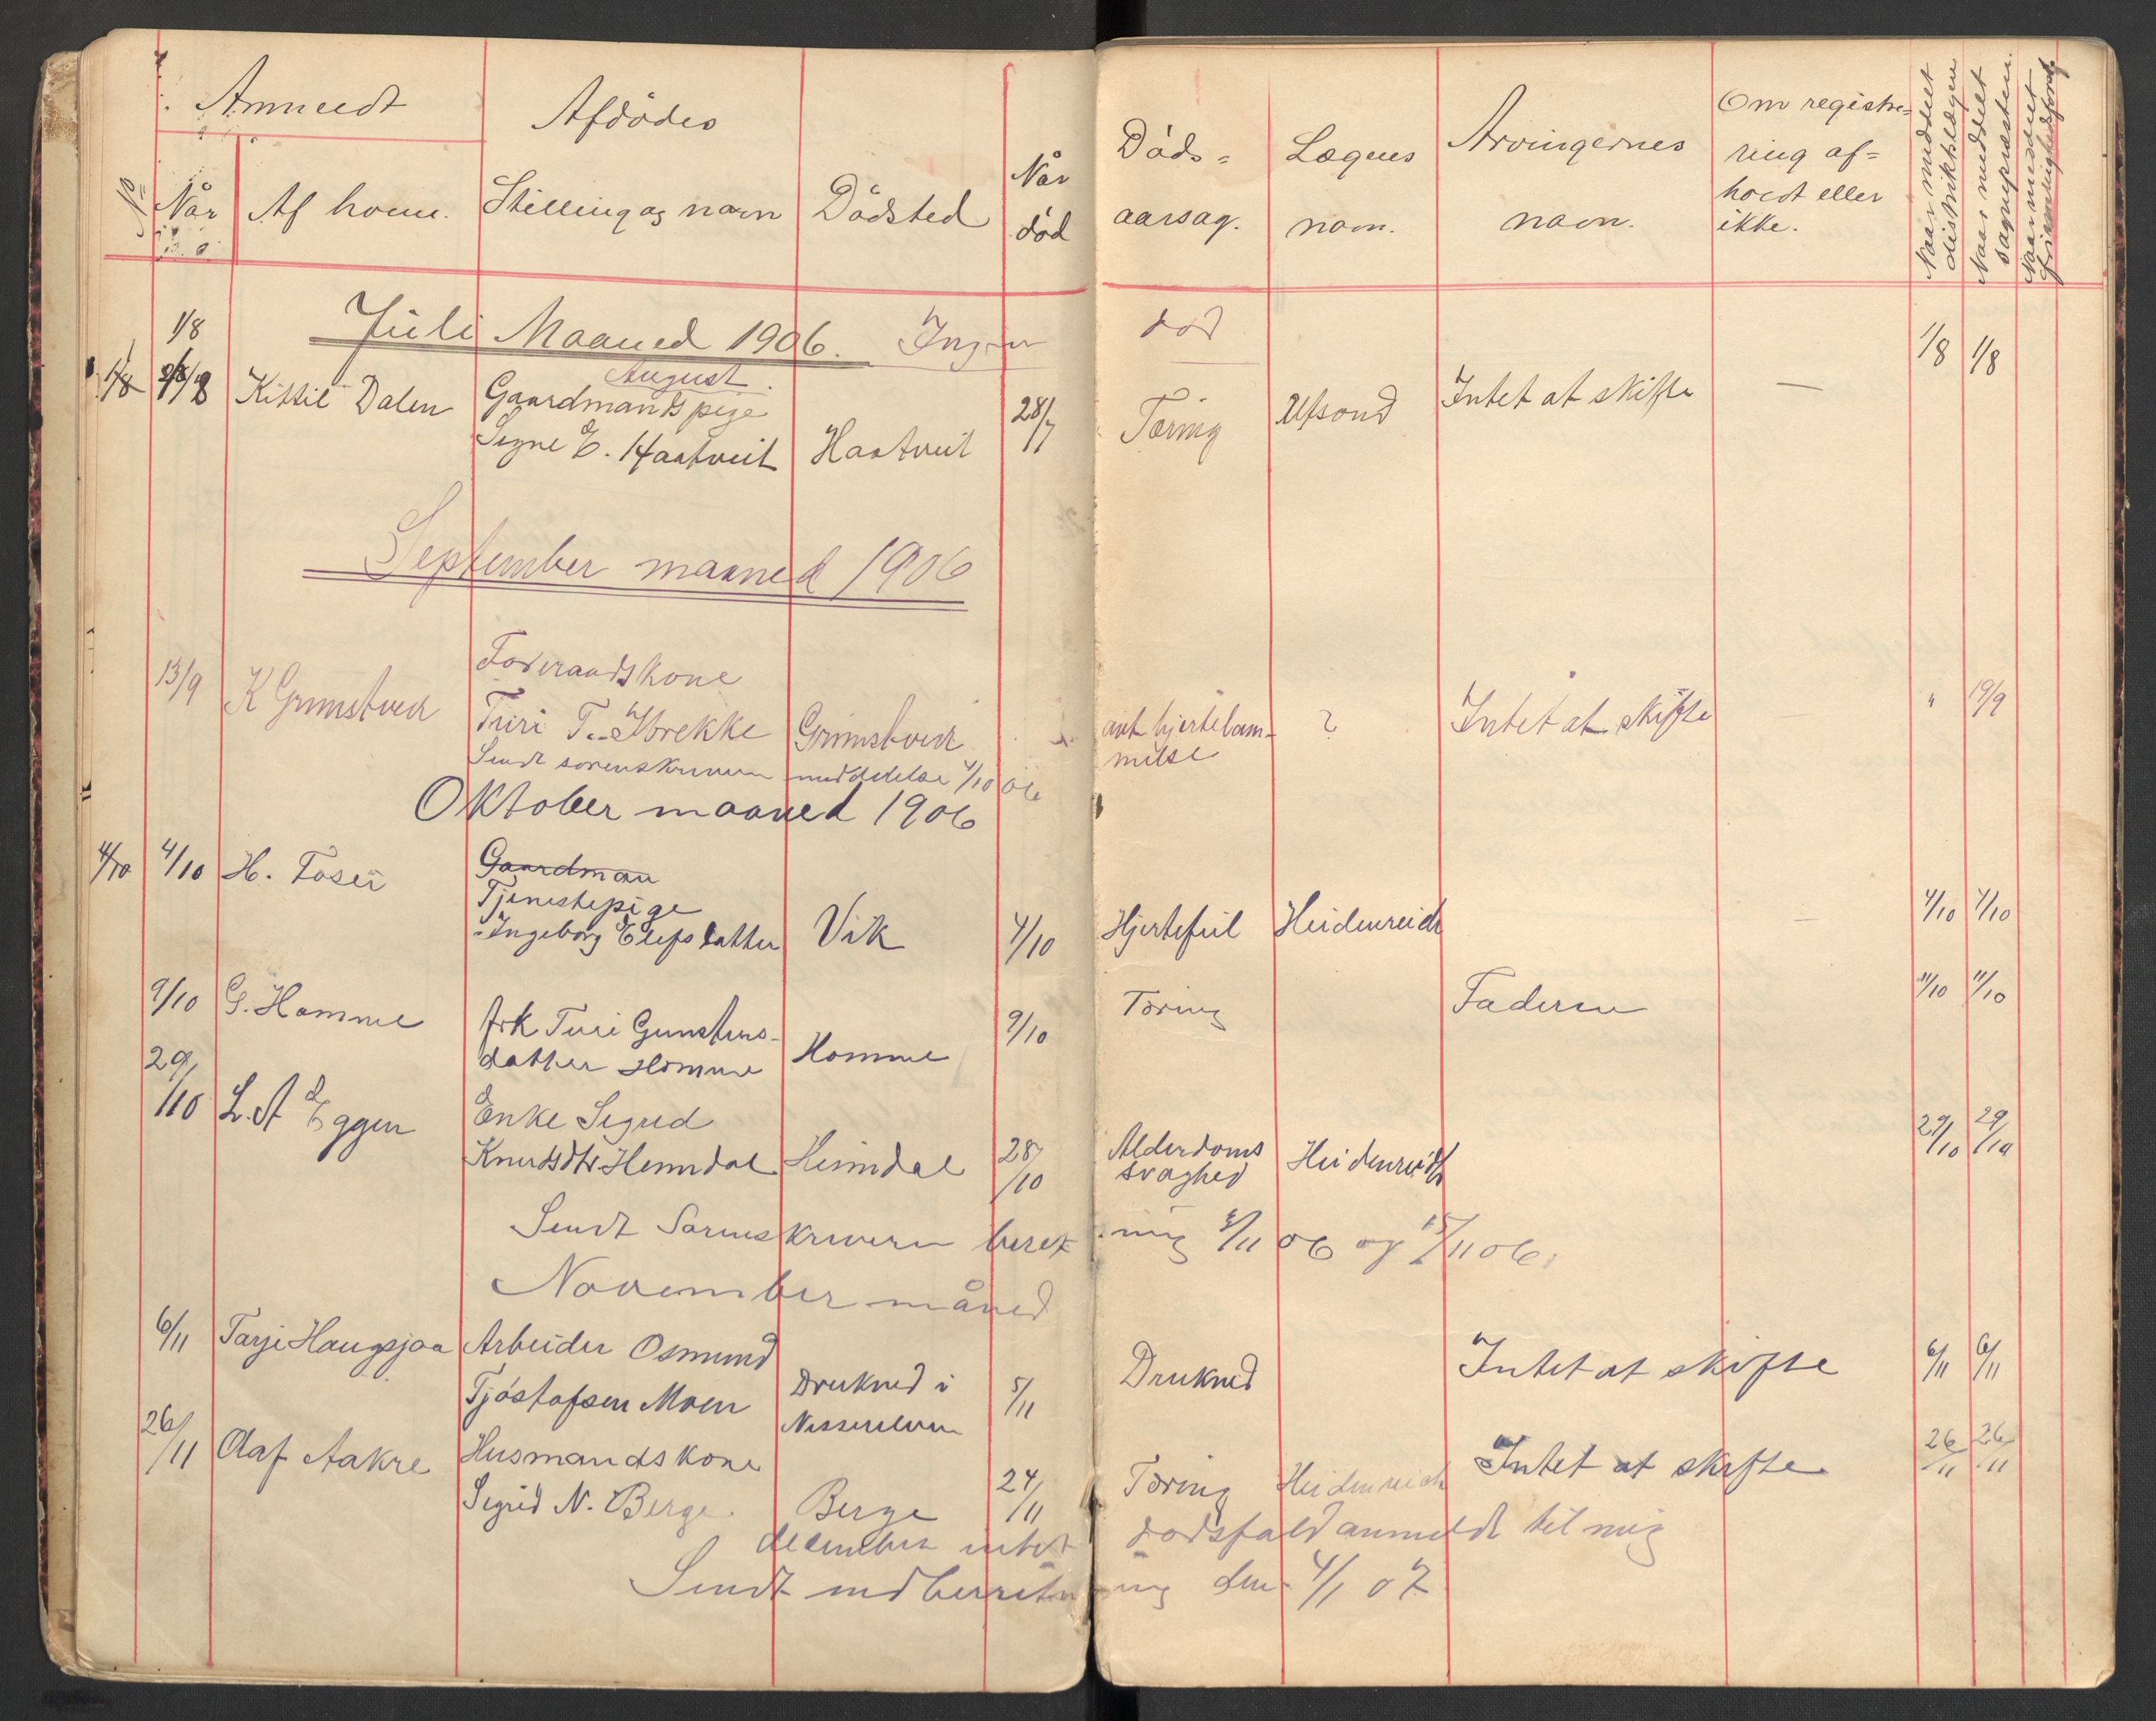 Anmeldt
Afdödes
No
Når
Af hvem.
Stilling og navn
Dödsted
Når
död
Döds=
aarsag.
Lægens
navn.
Arvingernes
navn.
Om registre=
ring af=
holdt eller
ikke.
Naar meddelt
distriktslægen
Naar meddelt
sognepræsten.
Naar meddelt
1/8
Juli Maaned 1906. Ingen död
1/8 1/8
August.
1/8
Kittil Dalen
Gaardmandspige
Signe E. Haatveit
Haatveit
28/7
Tæring
Ufsond
Intet at skifte
—
September maaned 1906
13/9
K Grimstveit
Foderaadskone
Turi T. Brekke
Grimstveit
ant hjertelam-
melse
?
Intet at skifte
"
19/9
Sendt sorenskriveren meddelelse 4/10 06
Oktober maaned 1906
4/10
4/10
H. Fosei
Gaardman
Tjenestepige
Ingeborg Elefsdatter
Vik
4/10
Hjertefeil
Heidenreich
4/10
4/10
9/10
G. Homme
frk Turi Gunstens-
datter Homme
Homme
9/10
Tæring
Faderen
11/10
11/10
29/10
L. A Eggen
Enke Sigrid
Knudsdtr Heimdal
Heimdal
28/10
Alderdoms
svaghed
Heidenreich
29/10
29/10
Sendt Sorenskriveren beret ning 3/11 06 og 15/11 06.
November måned
6/11
Tarje Haugsjaa
Arbeider Osmund
Tjöstofsen Moen
Drukned i
Nisserelven
5/11
Druknet
Intet at skifte
6/11
6/11
26/11
Olaf Aakre
Husmandskone
Sigrid N. Berge
Berge
24/11
Tæring
Heidenreich
Intet at skifte
26/11
26/11
december intet dödsfald anmeldt til mig
Sendt indberetning den 4/1 07